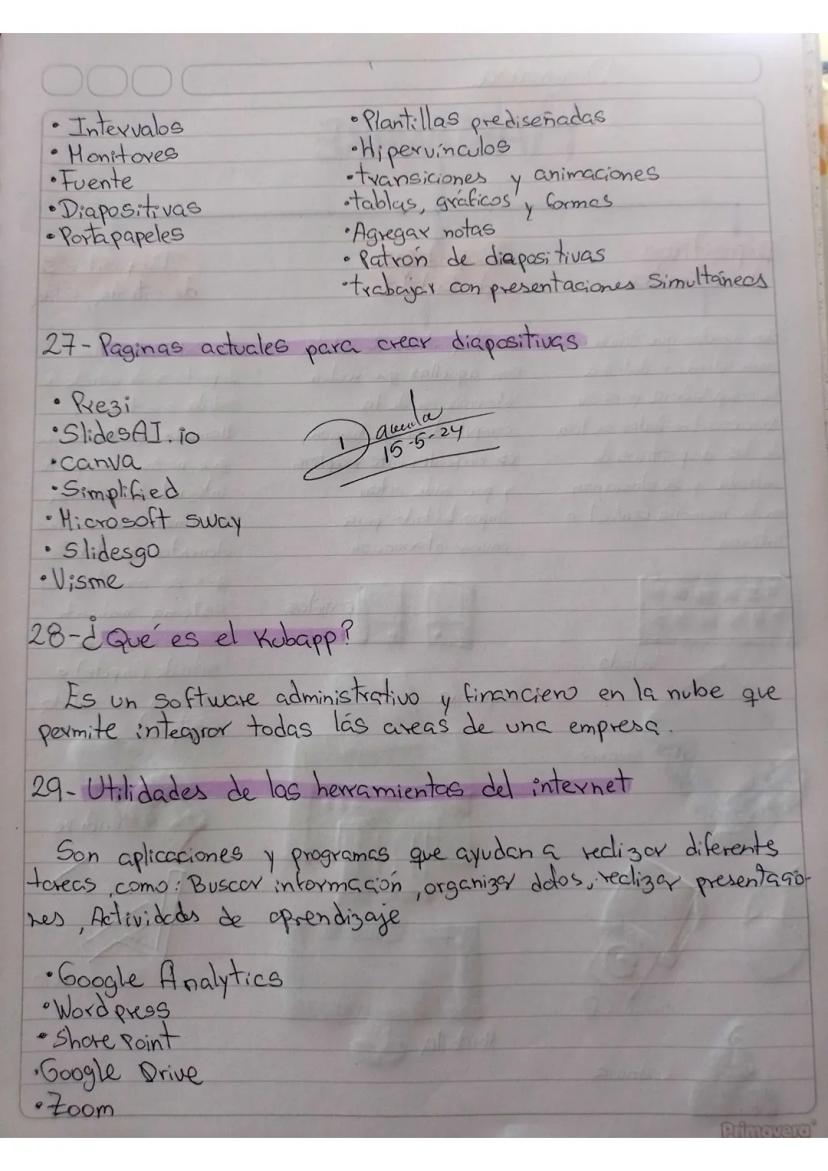 • Intervalos
• Monitores
• Fuente
• Diapositivas
• Portapapeles
• Plantillas prediseñadas
• Hipervínculos
• transiciones y animaciones
• tablas, gráficos y formas
• Agregar notas
• Patrón de diapositivas
• trabajar con presentaciones Simultáneas
27- Paginas actuales para crear diapositivas
• Prezi
• SlidesAI.io
• canva
• Simplified
• Microsoft sway
• Slidesgo
• Visme
15-5-24
28- ¿Qué es el Kubapp?
Es un software administrativo y financiero en la nube que
permite integrar todas lás areas de una empresa.
29- Utilidades de las herramientas del internet
Son aplicaciones y programas que ayudan a realizar diferents
tareas, como: Buscar información, organizar datos, realizar presentacio-
nes, Actividades de aprendizaje
• Google Analytics
• Wordpress
• Share Point
• Google Drive
• Zoom
Primavera